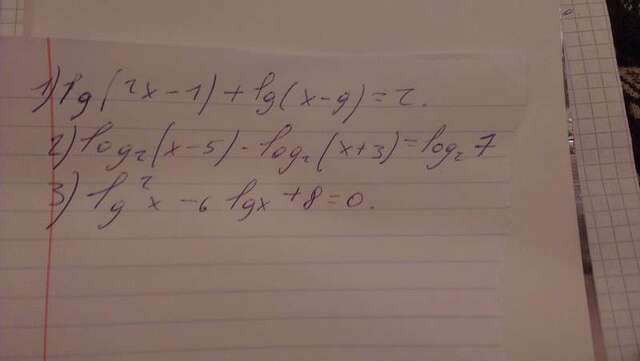 1) lg(2x-1)+lg(x-9)=2.
2) log₂(x-5)-log₂(x+3)=log₂7
3) lg²x-6lgx+8=0.